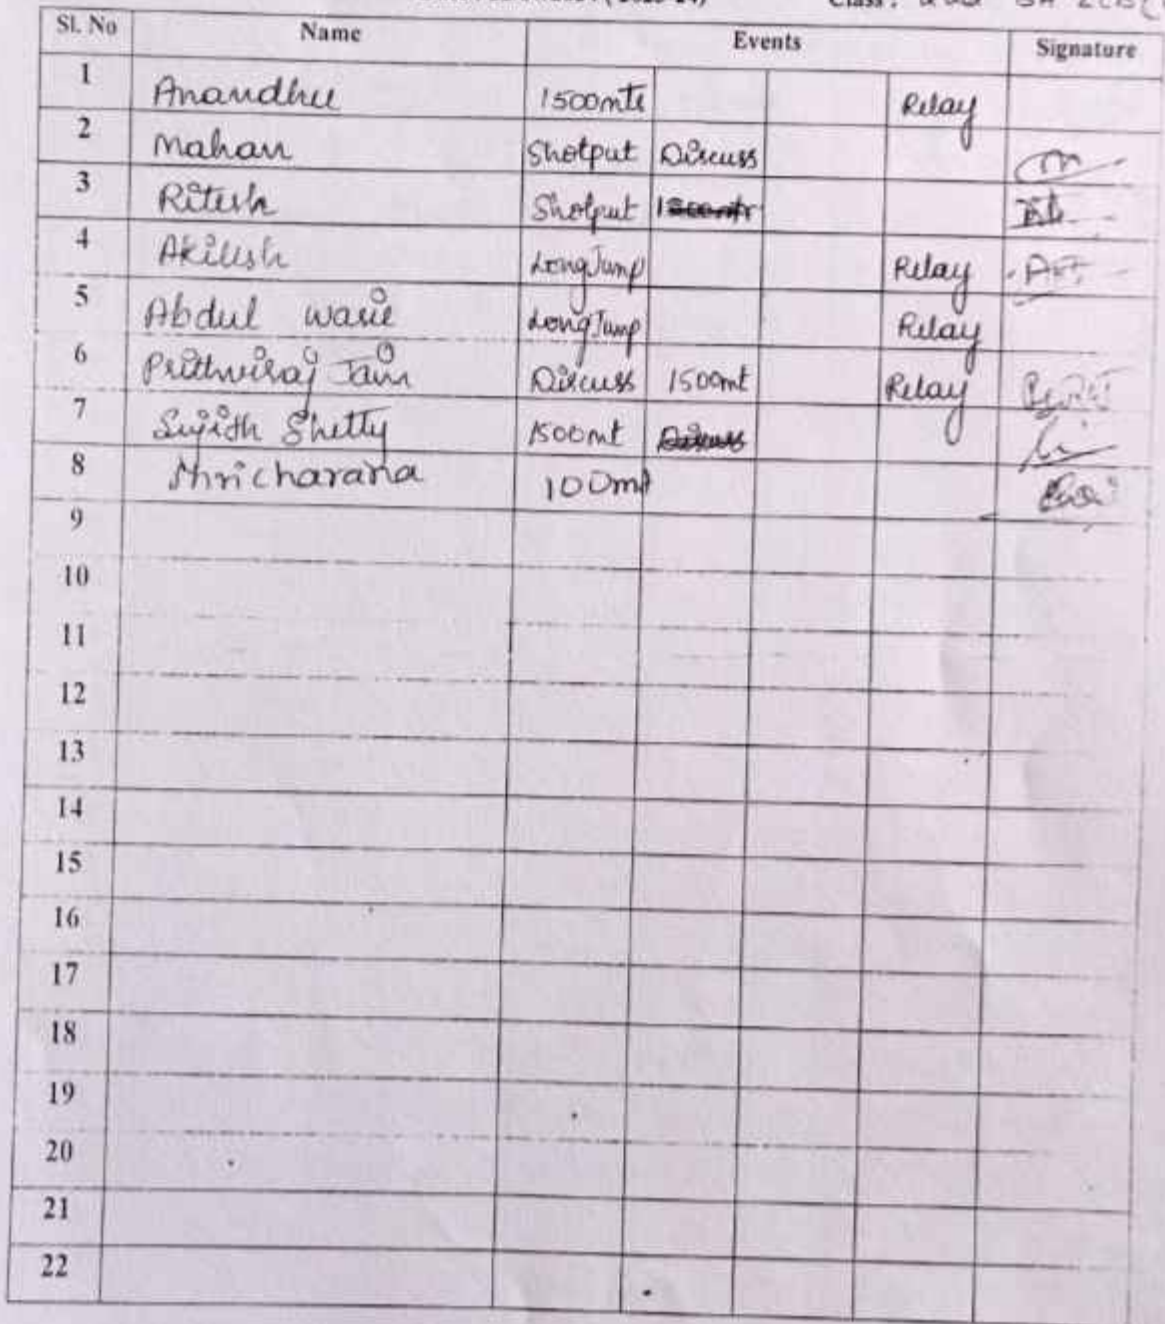 Class :
Sl. No Name Events Signature
1 Anandhu 1500mts Relay
2 Mahan Shotput Discuss
3 Ritesh Shotput
4 Akilesh Long Jump Relay
5 Abdul Long Jump Relay
6 Prithviraj Jain Discuss 1500mt Relay
7 Sujith Shetty 1500mt Discuss
8 Shricharana 100mt
9
10
11
12
13
14
15
16
17
18
19
20
21
22